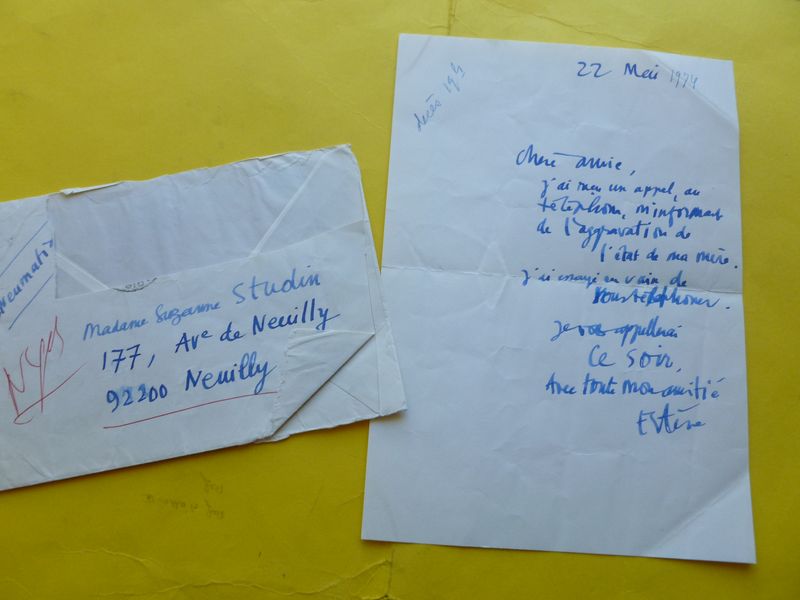 Pneumatique
Madame Suzanne Studin
177, Ave de Neuilly
92200 Neuilly
22 Mai 1974
décès
Chère amie,
j'ai reçu un appel, au
téléphone, m'informant
de l'aggravation de
l'état de ma mère.
j'ai essayé en vain de
vous téléphoner.
Je vous appellerai
Ce soir,
Avec toute mon amitié
Estève